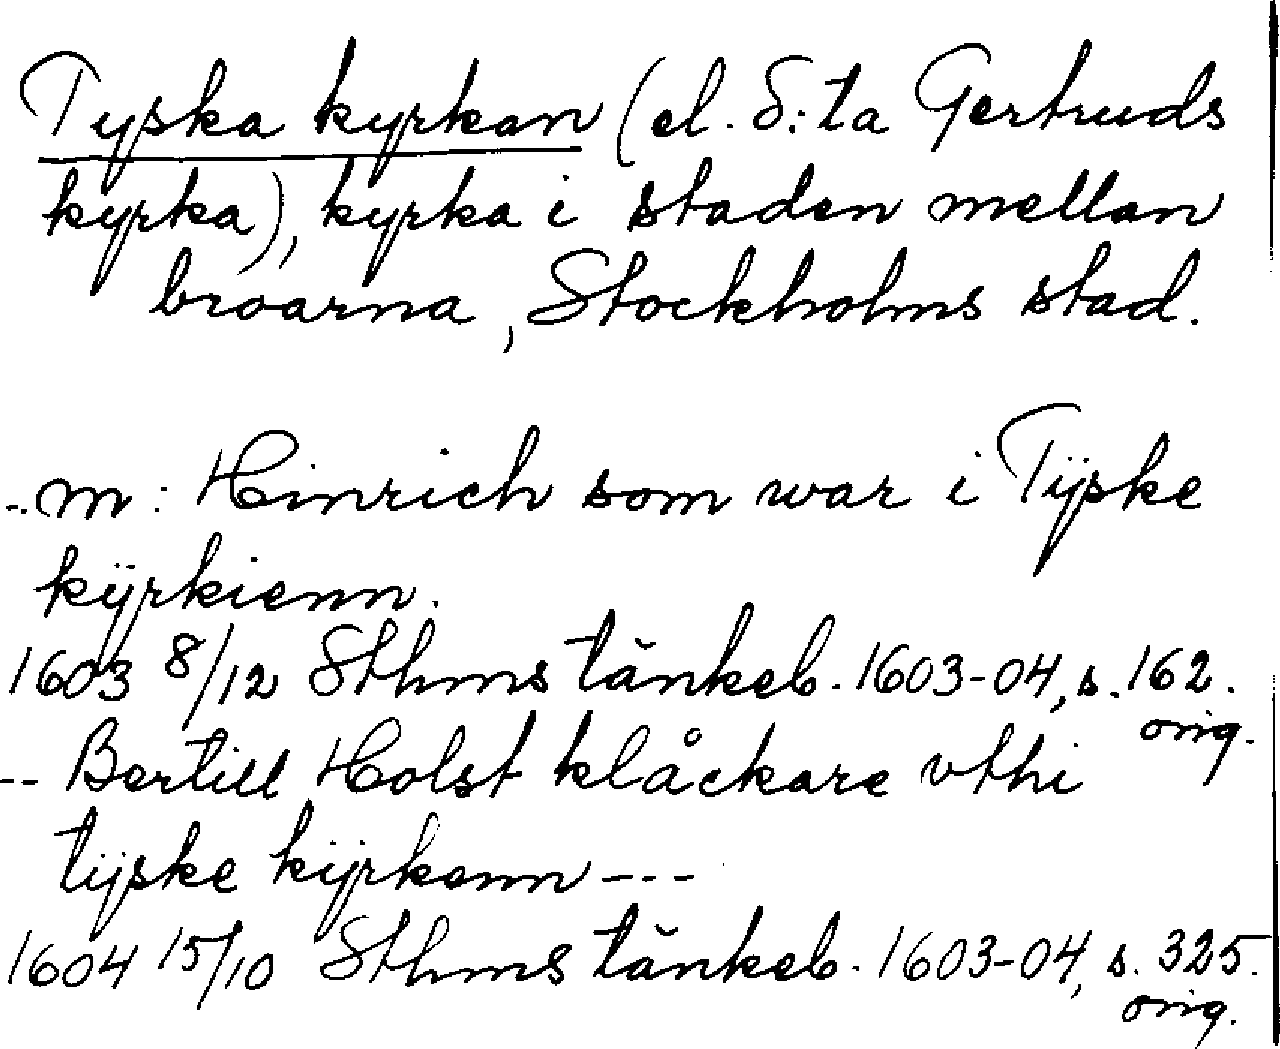 Tyska kyrkan (el. S:ta Gertruds
kyrka), kyrka i staden mellan
broarna, Stockholms stad.
-- m: Hinrich som war i Tÿske
kÿrkienn.
1603 8/12 Sthms tänkeb. 1603-04, s. 162.
orig.
-- Bertill Holst klåckare vthi
tÿske kÿrkenn ---
1604 15/10 Sthms tänkeb. 1603-04, s. 325.
orig.